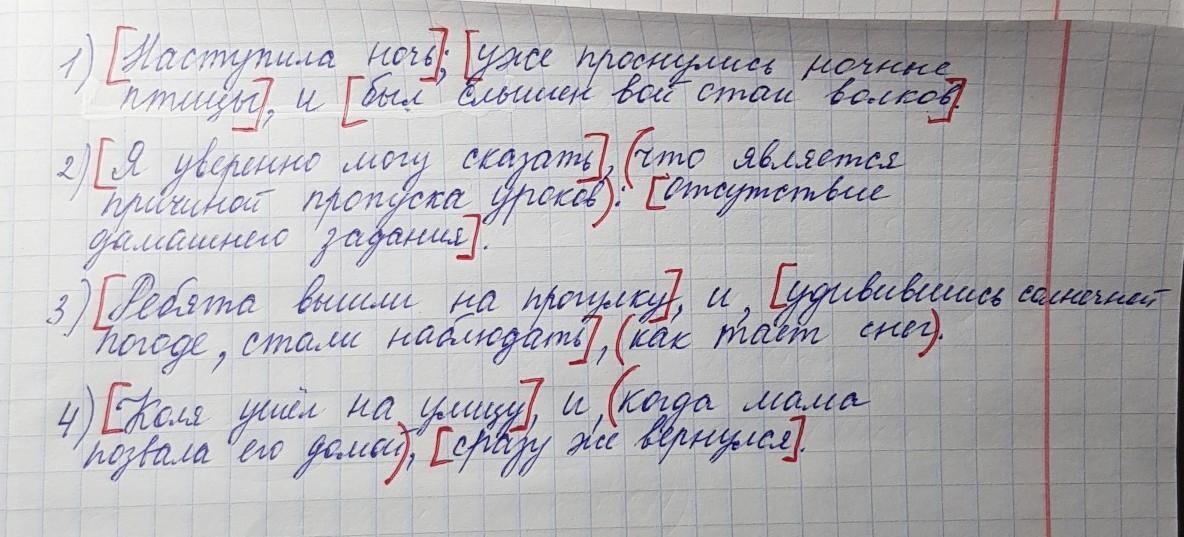 1) [Наступила ночь]; [уже проснулись ночные
птицы], и [был слышен вой стаи волков].
2) [Я уверенно могу сказать], (что является
причиной пропуска уроков): [отсутствие
домашнего задания].
3) [Ребята вышли на прогулку], и, [удивившись солнечной
погоде, стали наблюдать], (как тает снег).
4) [Коля ушёл на улицу], и, (когда мама
позвала его домой), [сразу же вернулся].